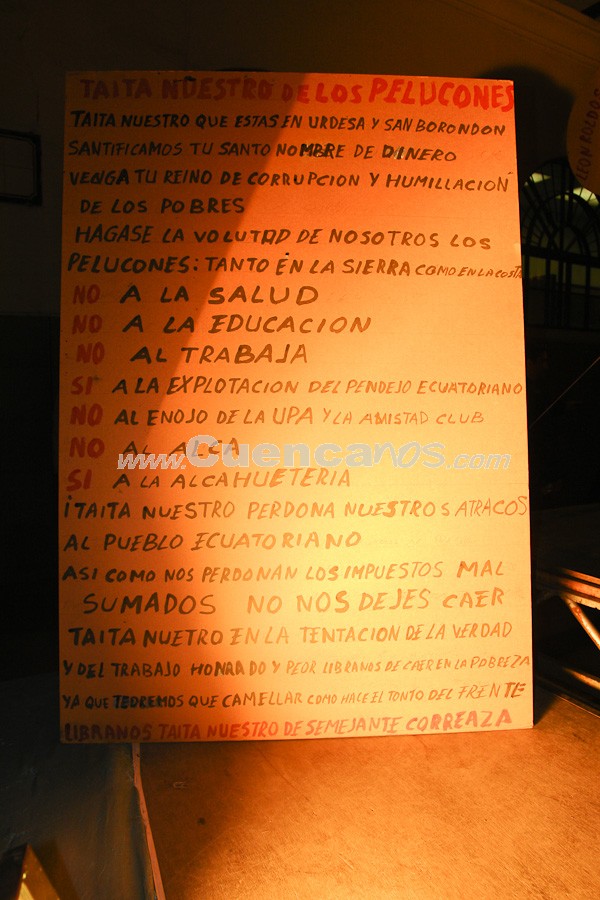 TAITA NUESTRO DE LOS PELUCONES
TAITA NUESTRO QUE ESTAS EN URDESA Y SAN BORONDON
SANTIFICAMOS TU SANTO NOMBRE DE DINERO
VENGA TU REINO DE CORRUPCION Y HUMILLACION
DE LOS POBRES
HAGASE LA VOLUTAD DE NOSOTROS LOS
PELUCONES: TANTO EN LA SIERRA COMO EN LA COSTA
NO A LA SALUD
NO A LA EDUCACION
NO AL TRABAJA
SI A LA EXPLOTACION DEL PENDEJO ECUATORIANO
NO AL ENOJO DE LA UPA Y LA AMISTAD CLUB
NO AL ALCA
www.Cuencanos.com
SI A LA ALCAHUETERIA
¡TAITA NUESTRO PERDONA NUESTROS ATRACOS
AL PUEBLO ECUATORIANO
ASI COMO NOS PERDONAN LOS IMPUESTOS MAL
SUMADOS NO NOS DEJES CAER
TAITA NUETRO EN LA TENTACION DE LA VERDAD
Y DEL TRABAJO HONRADO Y PEOR LIBRANOS DE CAER EN LA POBREZA
YA QUE TEDREMOS QUE CAMELLAR COMO HACE EL TONTO DEL FRENTE
LIBRANOS TAITA NUESTRO DE SEMEJANTE CORREAZA
LEON ROLDOS